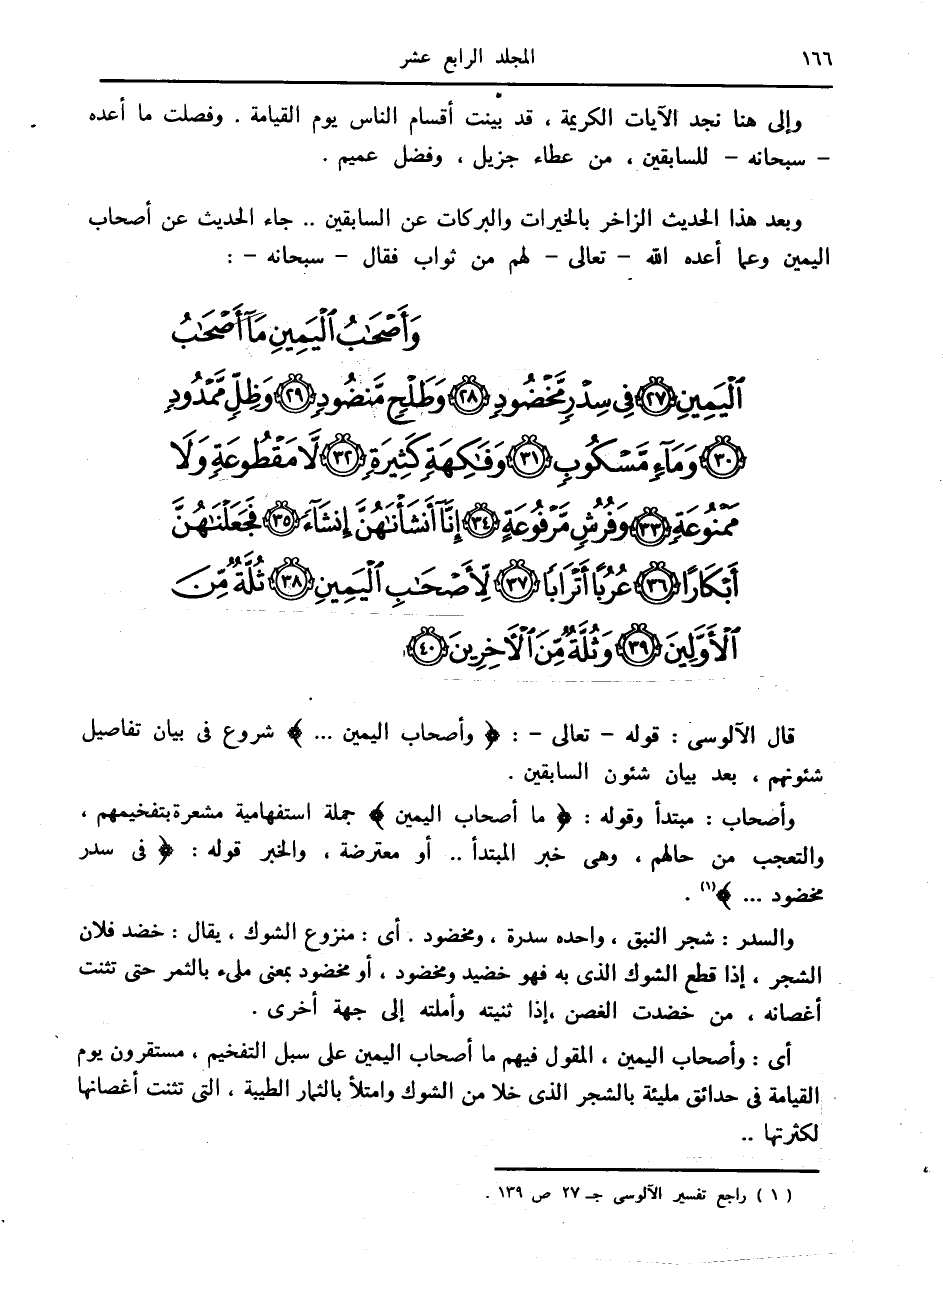 ١٦٦ المجلد الرابع عشر
وإلى هنا نجد الآيات الكريمة ، قد بينت أقسام الناس يوم القيامة . وفصلت ما أعده
– سبحانه – للسابقين ، من عطاء جزيل ، وفضل عميم .
وبعد هذا الحديث الزاخر بالخيرات والبركات عن السابقين .. جاء الحديث عن أصحاب
اليمين وعما أعده الله – تعالى – لهم من ثواب فقال – سبحانه – :
وَأَصْحَٰبُ ٱلْيَمِينِ مَآ أَصْحَٰبُ
ٱلْيَمِينِ ٢٧ فِى سِدْرٍ مَّخْضُودٍ ٢٨ وَطَلْحٍ مَّنضُودٍ ٢٩ وَظِلٍّ مَّمْدُودٍ
٣٠ وَمَآءٍ مَّسْكُوبٍ ٣١ وَفَٰكِهَةٍ كَثِيرَةٍ ٣٢ لَّا مَقْطُوعَةٍ وَلَا
مَمْنُوعَةٍ ٣٣ وَفُرُشٍ مَّرْفُوعَةٍ ٣٤ إِنَّآ أَنشَأْنَٰهُنَّ إِنشَآءً ٣٥ فَجَعَلْنَٰهُنَّ
أَبْكَارًا ٣٦ عُرُبًا أَتْرَابًا ٣٧ لِّأَصْحَٰبِ ٱلْيَمِينِ ٣٨ ثُلَّةٌ مِّنَ
ٱلْأَوَّلِينَ ٣٩ وَثُلَّةٌ مِّنَ ٱلْأَخِرِينَ ٤٠
قال الآلوسى : قوله – تعالى – : ﴿ وأصحاب اليمين ... ﴾ شروع فى بيان تفاصيل
شئونهم ، بعد بيان شئون السابقين .
وأصحاب : مبتدأ وقوله : ﴿ ما أصحاب اليمين ﴾ جملة استفهامية مشعرة بتفخيمهم ،
والتعجب من حالهم ، وهى خبر المبتدأ .. أو معترضة ، والخبر قوله : ﴿ فى سدر
مخضود ... ﴾(١) .
والسدر : شجر النبق ، واحده سدرة ، ومخضود . أى : منزوع الشوك ، يقال : خضد فلان
الشجر ، إذا قطع الشوك الذى به فهو خضيد ومخضود ، أو مخضود بمعنى ملىء بالثمر حتى تثنت
أغصانه ، من خضدت الغصن ،إذا ثنيته وأملته إلى جهة أخرى .
أى : وأصحاب اليمين ، المقول فيهم ما أصحاب اليمين على سبل التفخيم ، مستقرون يوم
القيامة فى حدائق مليئة بالشجر الذى خلا من الشوك وامتلأ بالثمار الطيبة ، التى تثنت أغصانها
لكثرتها ..
( ١ ) راجع تفسير الآلوسى جـ ٢٧ ص ١٣٩ .